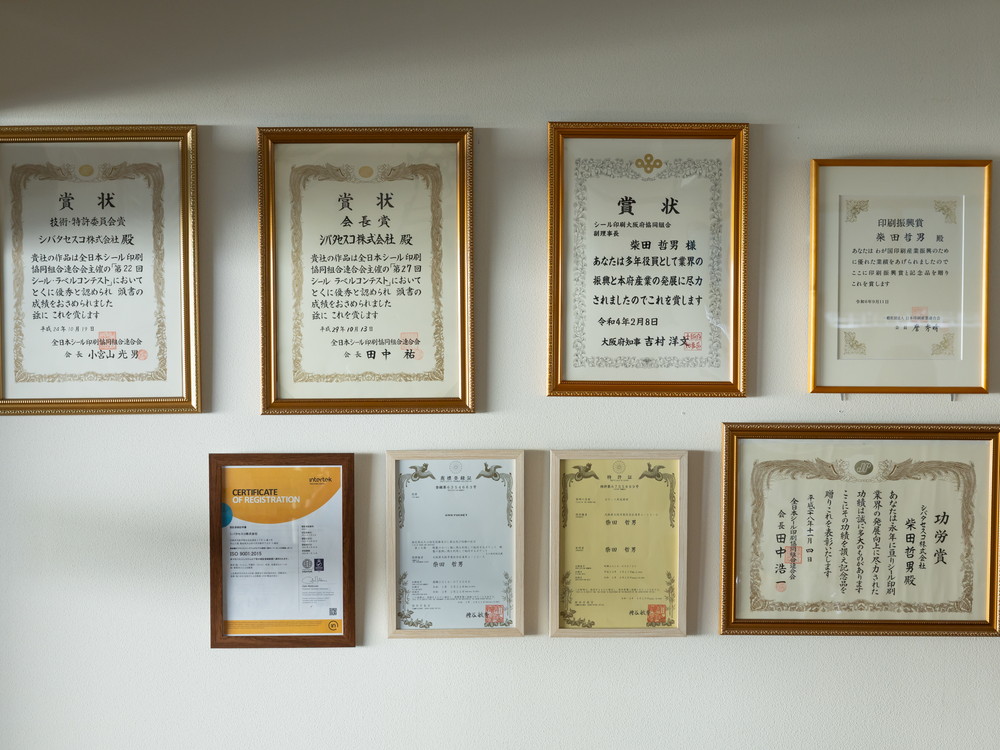 賞状
技術・特許委員会賞
シバタセスコ株式会社 殿
貴社の作品は全日本シール印刷
協同組合連合会主催の「第22回
シール・ラベルコンテスト」において
とくに優秀と認められ 頭書の
成績をおさめられました
茲に これを賞します
全日本シール印刷協同組合連合会
会長 小宮山光男
賞状
会長賞
シバタセスコ株式会社 殿
貴社の作品は全日本シール印刷
協同組合連合会主催の「第27回
シール・ラベルコンテスト」において
とくに優秀と認められ 頭書の
成績をおさめられました
茲に これを賞します
平成29年10月13日
全日本シール印刷協同組合連合会
会長 田中 祐
賞状
シール印刷大阪府協同組合
副理事長
柴田 哲男 様
あなたは多年役員として業界の
振興と本府産業の発展に尽力
されましたのでこれを賞します
令和4年2月8日
大阪府知事 吉村洋文
印刷振興賞
柴田哲男 殿
あなたは わが国印刷産業振興のため
に優れた業績をあげられましたので
ここに印刷振興賞と記念品を贈り
これを賞します
intertek
CERTIFICATE
OF REGISTRATION
ISO 9001:2015
商標登録証
柴田 哲男
特許証
柴田 哲男
柴田 哲男
功労賞
シバタセスコ株式会社
柴田哲男殿
あなたは永年に亘りシール印刷
業界の発展向上に尽力された
功績は誠に多大のものがあります
ここにその功績を讃え記念品を
贈りこれを表彰いたします
平成二八年十一月四日
全日本シール印刷協同組合連合会
会長 田中浩一